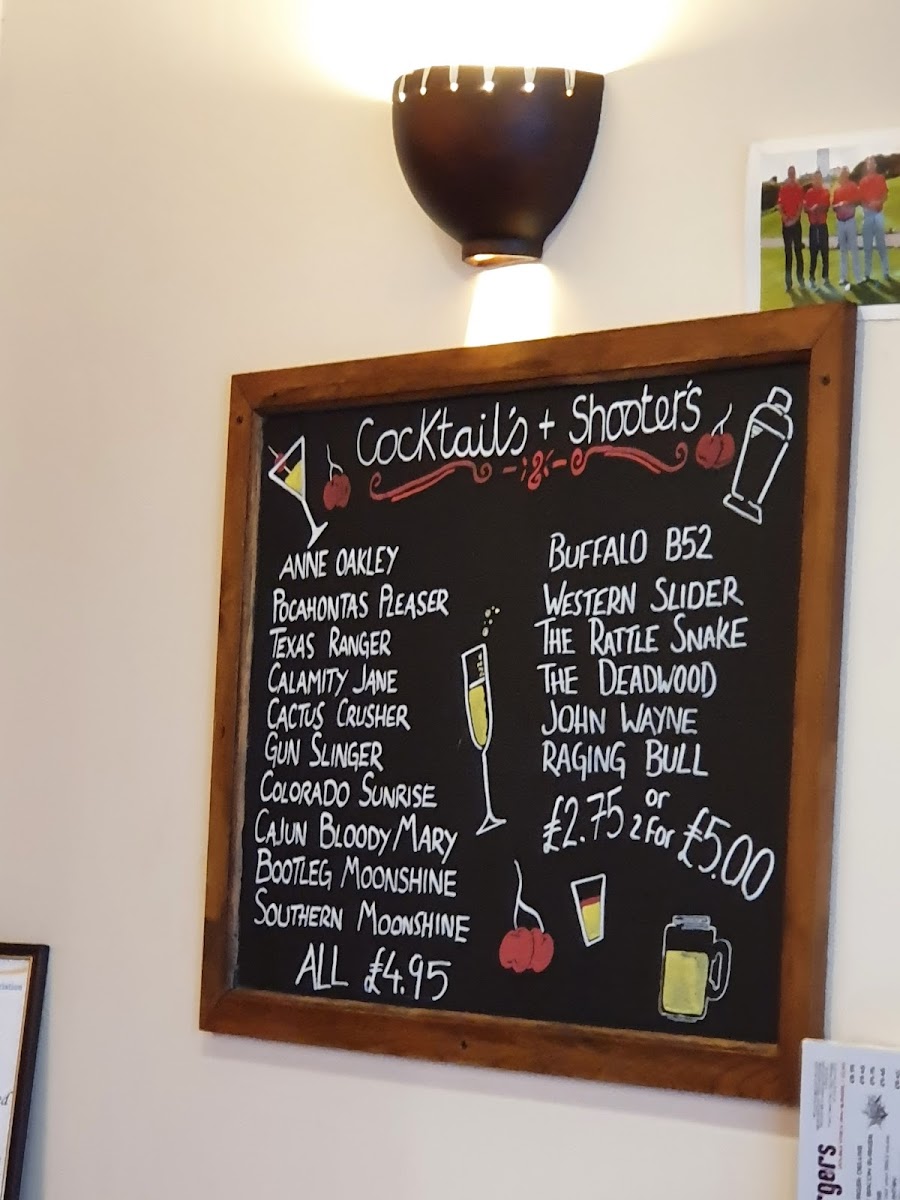 Cocktail's + Shooter's
ANNE OAKLEY
POCAHONTAS PLEASER
TEXAS RANGER
CALAMITY JANE
CACTUS CRUSHER
GUN SLINGER
COLORADO SUNRISE
CAJUN BLOODY MARY
BOOTLEG MOONSHINE
SOUTHERN MOONSHINE
ALL £4.95
BUFFALO B52
WESTERN SLIDER
THE RATTLE SNAKE
THE DEADWOOD
JOHN WAYNE
RAGING BULL
£2.75 or 2 For £5.00